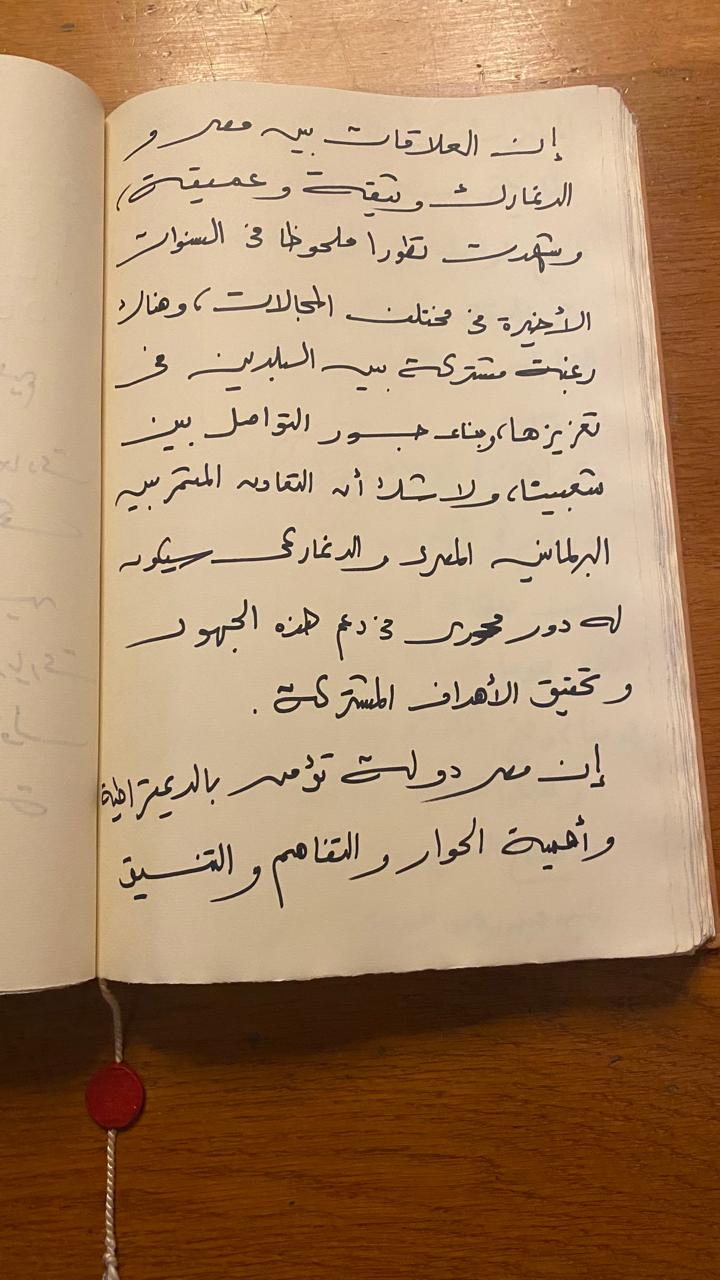 إن العلاقات بين مصر و
الدنمارك وثيقة وعميقة،
وشهدت تطورا ملحوظا في السنوات
الأخيرة في مختلف المجالات، وهناك
رغبة مشتركة بين البلدين في
تعزيزها، وبناء جسور التواصل بين
شعبيتا، ولا شك أن التعاون المثمر بين
البرلمانين المصرى والدنماركى سيكون
له دور محورى في دعم هذه الجهود
وتحقيق الأهداف المشتركة.
إن مصر دولة تؤمن بالديمقراطية
وأهمية الحوار والتفاهم والتنسيق